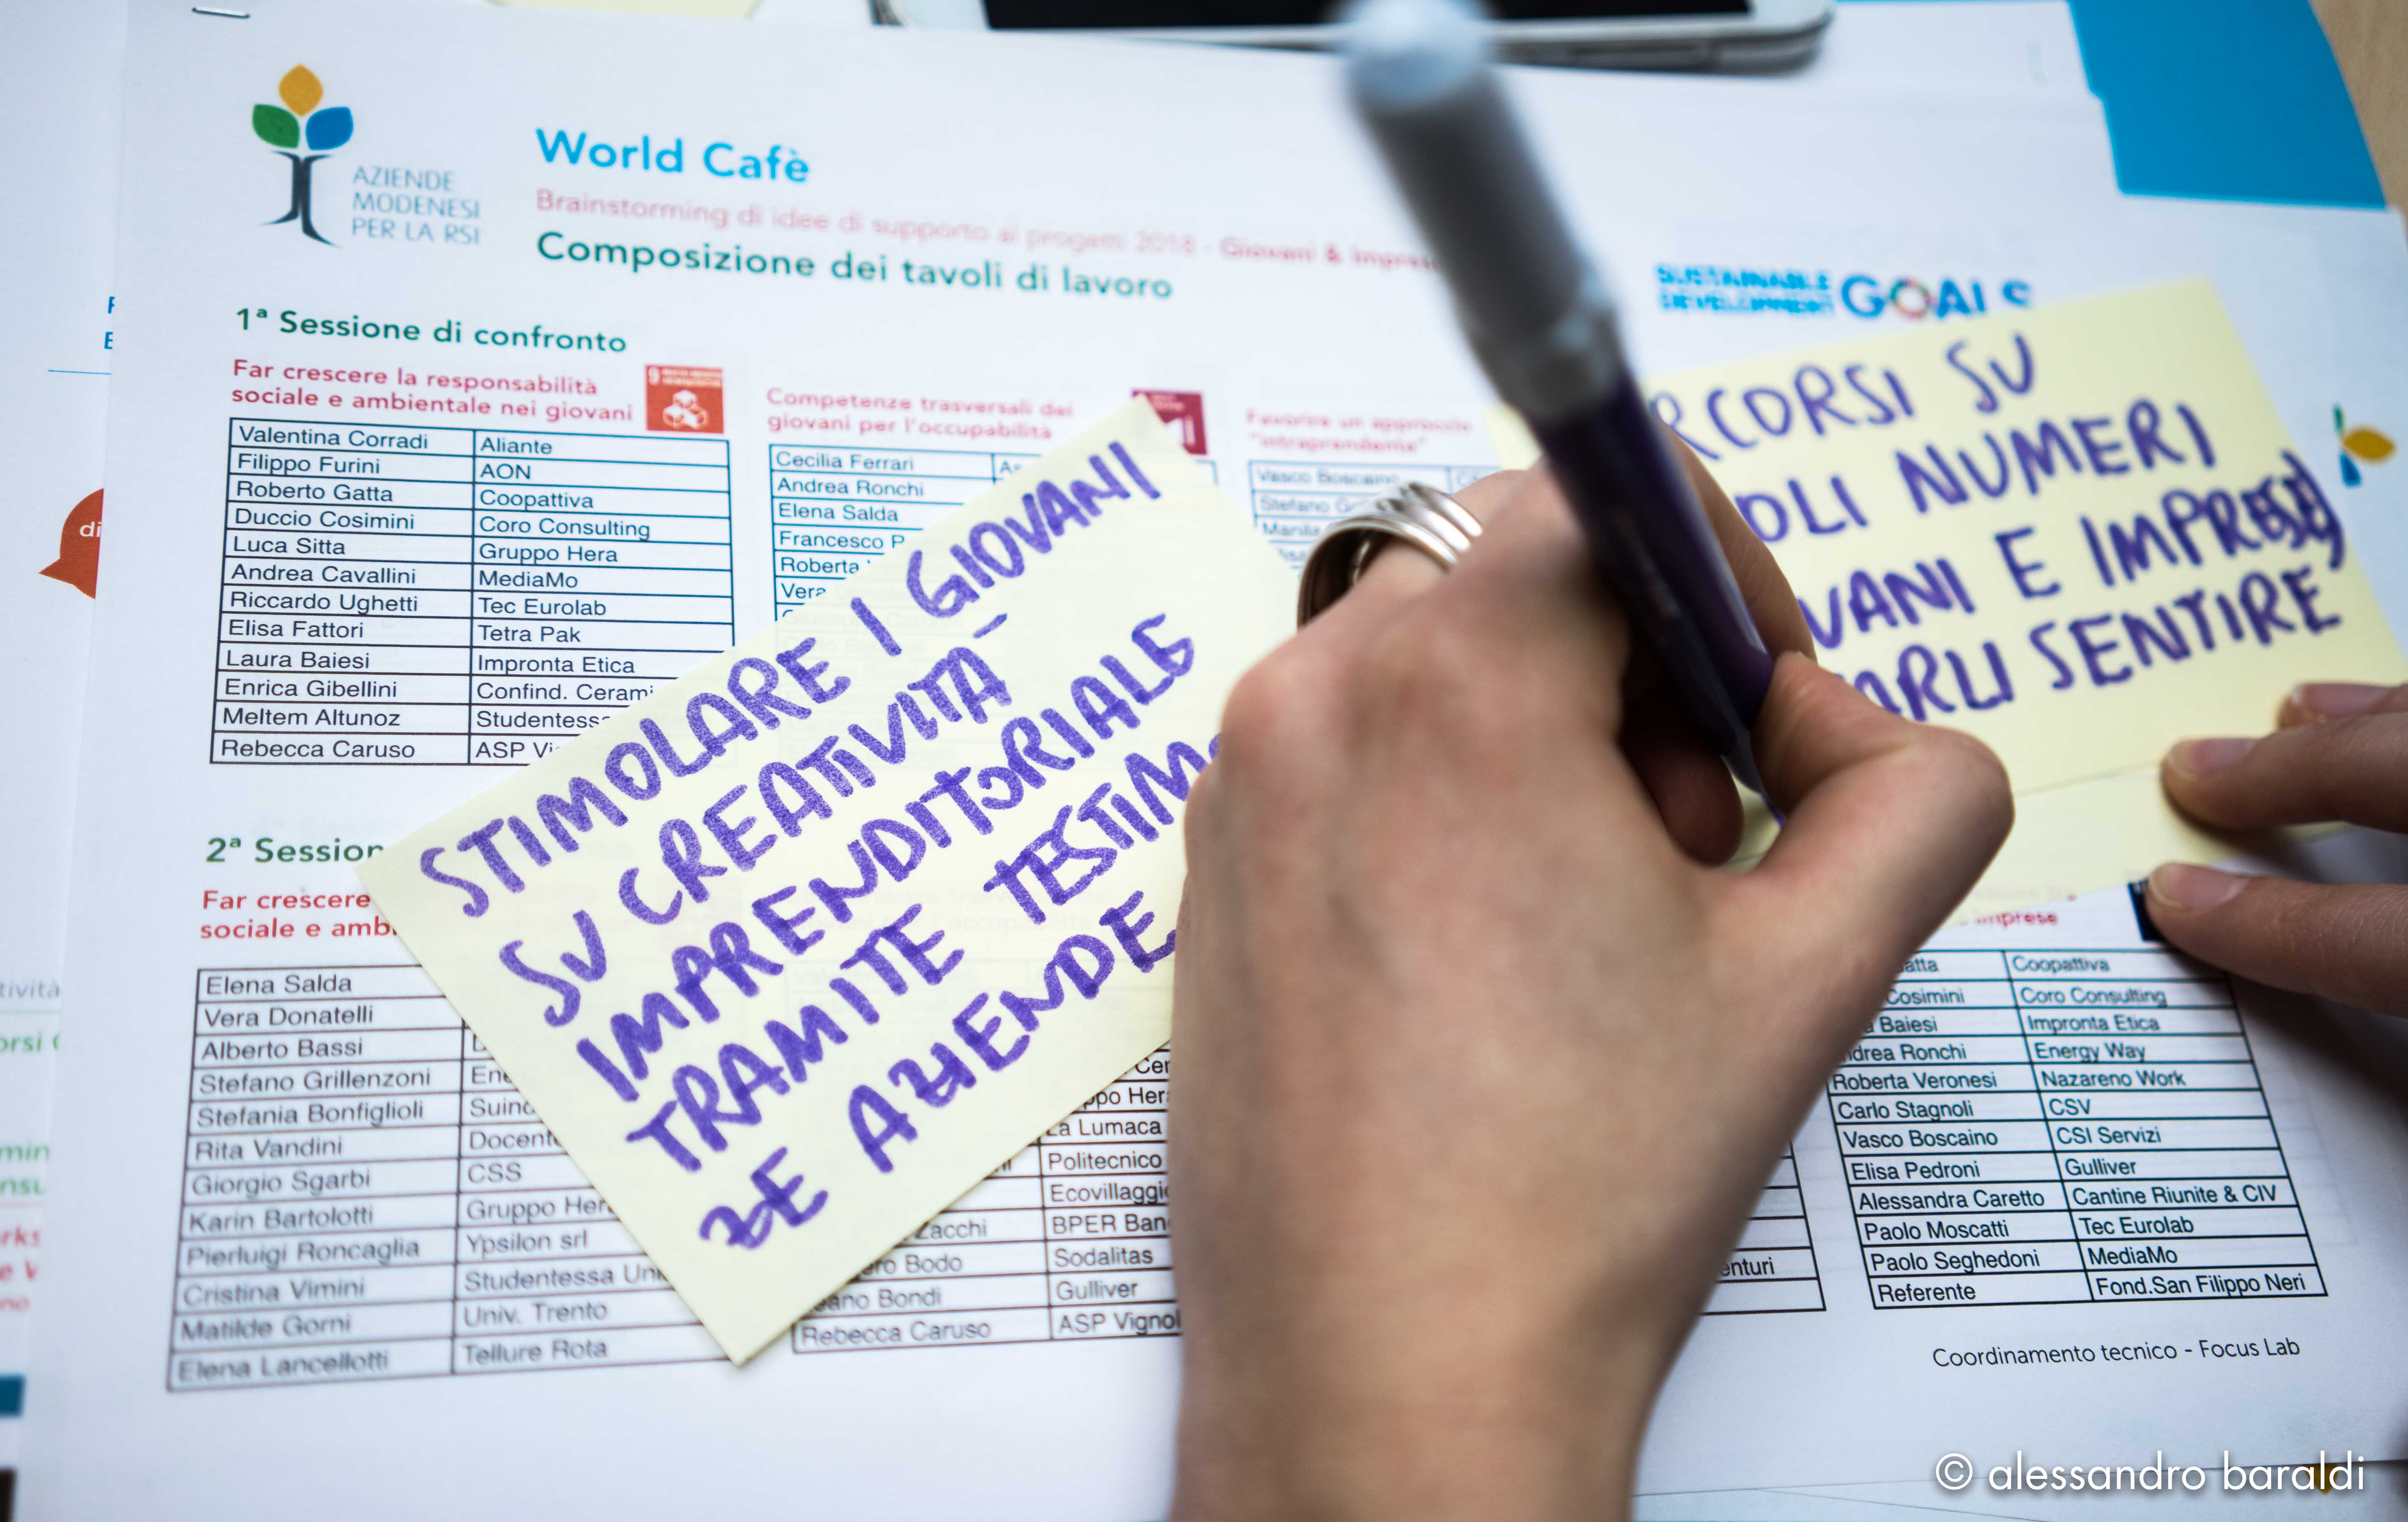 AZIENDE
MODENESI
PER LA RSI
World Cafè
Brainstorming di idee di supporto ai progetti 2018 - Giovani &
Composizione dei tavoli di lavoro
SUSTAINABLE
DEVELOPMENT
GOALS
1ª Sessione di confronto
Far crescere la responsabilità
sociale e ambientale nei giovani
Valentina Corradi Aliante
Filippo Furini AON
Roberto Gatta Coopattiva
Duccio Cosimini Coro Consulting
Luca Sitta Gruppo Hera
Andrea Cavallini MediaMo
Riccardo Ughetti Tec Eurolab
Elisa Fattori Tetra Pak
Laura Baiesi Impronta Etica
Enrica Gibellini Confind.
Meltem Altunoz
Rebecca Caruso ASP
Competenze trasversali dei
giovani per l'occupabilità
Cecilia Ferrari
Andrea Ronchi
Elena Salda
Francesco
Roberta
Vera
Favorire un approccio
"intraprendente"
Vasco Boscaino
Stefano
STIMOLARE I GIOVANI
SU CREATIVITÀ
IMPRENDITORIALE
TRAMITE
ZE AZIENDE
SU
NUMERI
E IMPRESE,
SENTIRE
2ª
Far crescere
sociale e
Elena Salda
Vera Donatelli
Alberto Bassi
Stefano Grillenzoni
Stefania Bonfiglioli
Rita Vandini
Giorgio Sgarbi CSS
Karin Bartolotti Gruppo
Pierluigi Roncaglia Ypsilon srl
Cristina Vimini Studentessa
Matilde Gorni Univ. Trento
Elena Lancellotti Tellure Rota
La Lumaca
Politecnico
Zacchi BPER
Bodo Sodalitas
Bondi Gulliver
Rebecca Caruso ASP
imprese
Coopattiva
Cosimini Coro Consulting
Baiesi Impronta Etica
Ronchi Energy Way
Roberta Veronesi Nazareno Work
Carlo Stagnoli CSV
Vasco Boscaino CSI Servizi
Elisa Pedroni Gulliver
Alessandra Caretto Cantine Riunite & CIV
Paolo Moscatti Tec Eurolab
Paolo Seghedoni MediaMo
Referente Fond.San Filippo Neri
Coordinamento tecnico - Focus Lab
© alessandro baraldi